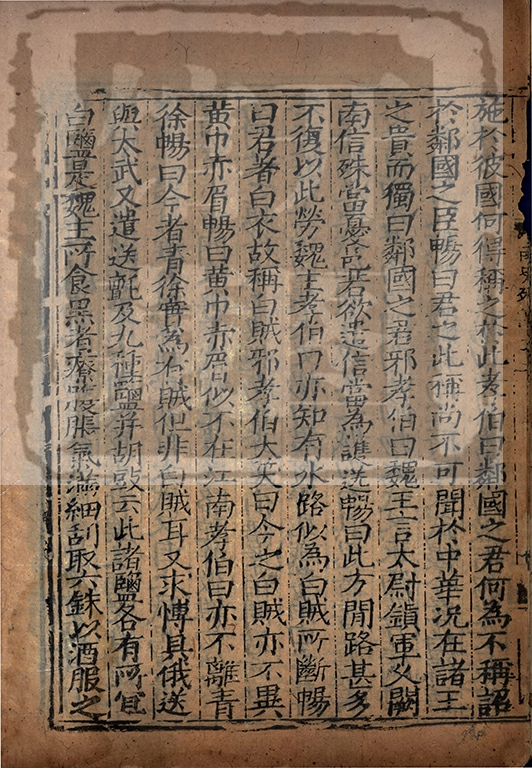 施於彼國何得稱之於此孝伯曰鄰國之君何為不稱詔
於鄰國之臣暢曰君之此稱尚不可聞於中華況在諸王
之貴而獨曰鄰國之君邪孝伯曰魏王言太尉鎮軍久闕
南信殊當憂邑若欲遣信當為護送暢曰此方閒路甚多
不復以此勞魏主孝伯曰亦知有水路似為白賊所斷暢
曰君者白衣故稱白賊邪孝伯大笑曰今之白賊亦不異
黃巾赤眉暢曰黃巾赤眉似不在江南孝伯曰亦不離青
徐暢曰今者青徐實為有賊但非白賊耳又求博具俄送
與太武又遣送氈及九種鹽并胡豉云此諸鹽各有所宜
白鹽是魏主所食黑者療腹脹氣滿細刮取六銖以酒服之